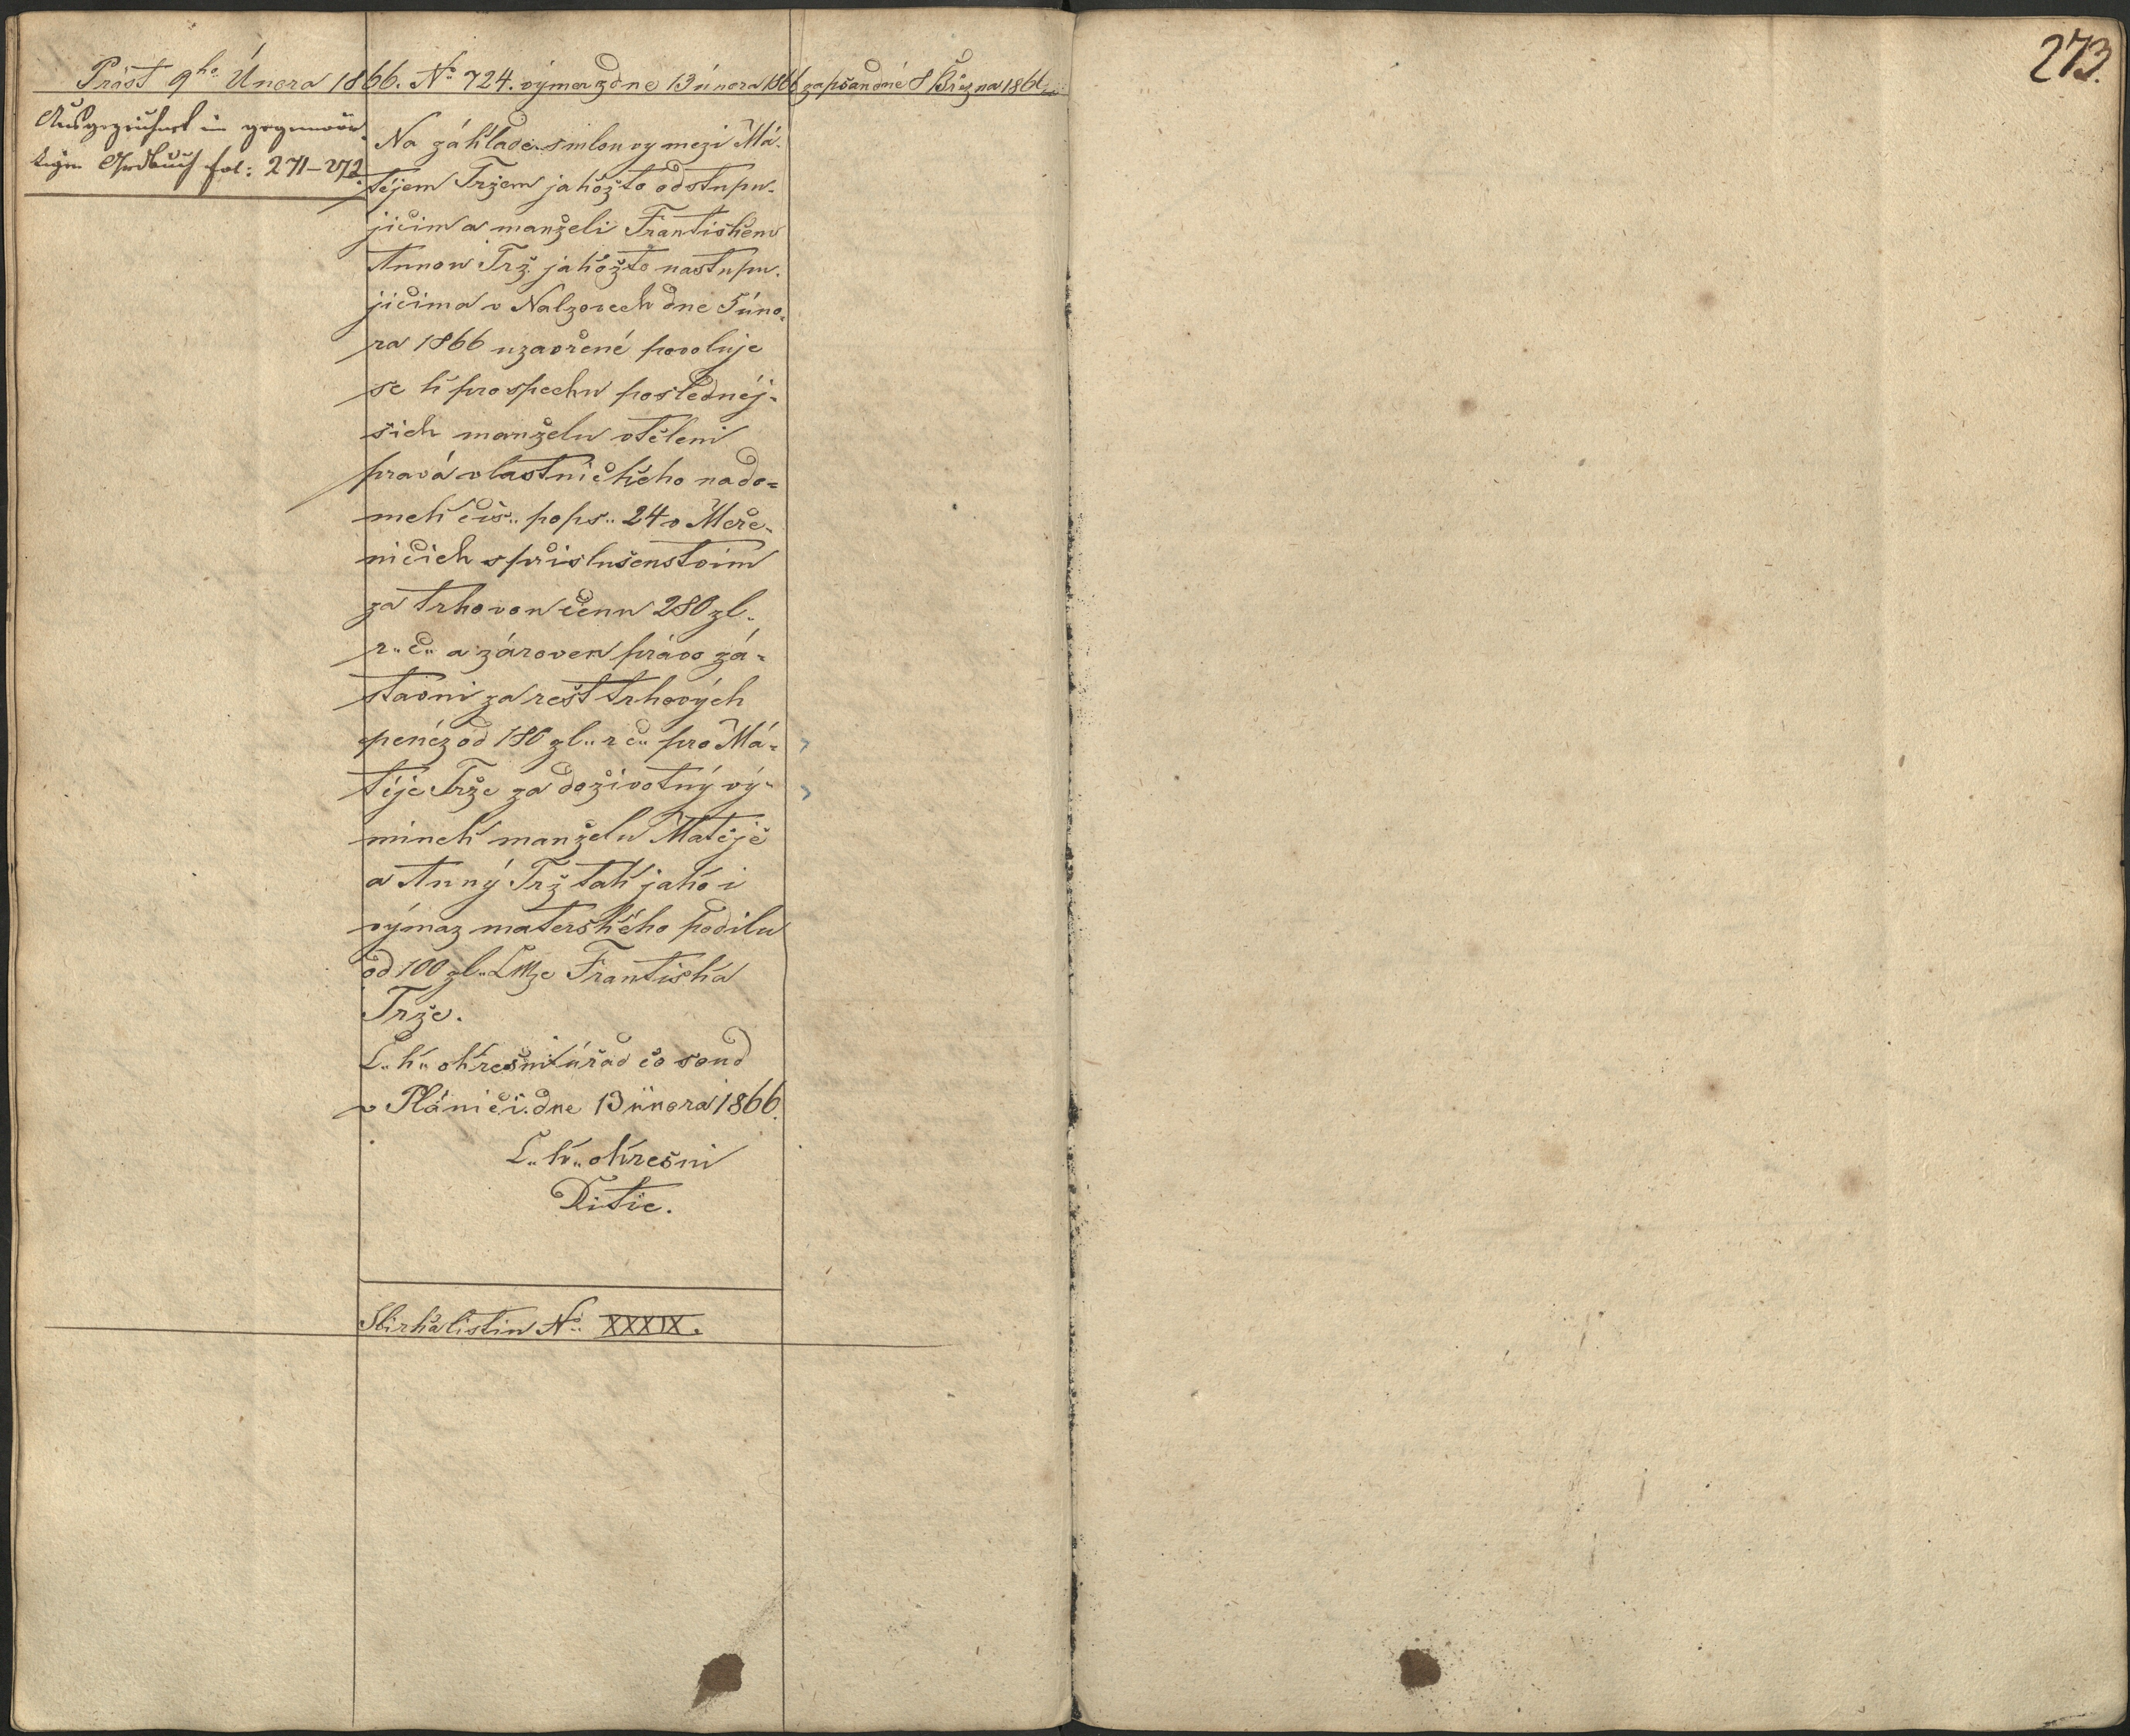 273.
Präst 9ho Února 1866. No 724. výmer z dne 13 února 1866 zapsan dné 8 Března 1866
Ausgezeichnet im gegenwär-
tigen Grdbuch fol: 271–272.
Na základe smlouvy mezi Má-
téjem Tržem jakožto odstupu-
jicim a manželi Frantiskem
Annou Trž jakožto nastupu-
jicima v Nalzovech dne 5 úno-
ra 1866 uzavřené povoluje
se k prospechu poslednéj-
šich manželu vtěleni
pravá vlastnického na do-
mek čis. pops. 24 v Meře-
ničich s přislušenstvim
za trhovou cenu 280 zl.
r. č. a zároven právo zá-
stavni za rešt trhových
penéz od 180 zl. r č. pro Má-
téje Trže za doživotný vý-
minek manželu Matěje
a Anný Trž tak jako i
výmaz materského podilu
od 100 zl. CMze Frantiska
Trže.
C. k. okresni úřad co soud
v Plánici dne 13 února 1866.
C. k. okresni
Ditie.
Sbirka listin No XXXIX.